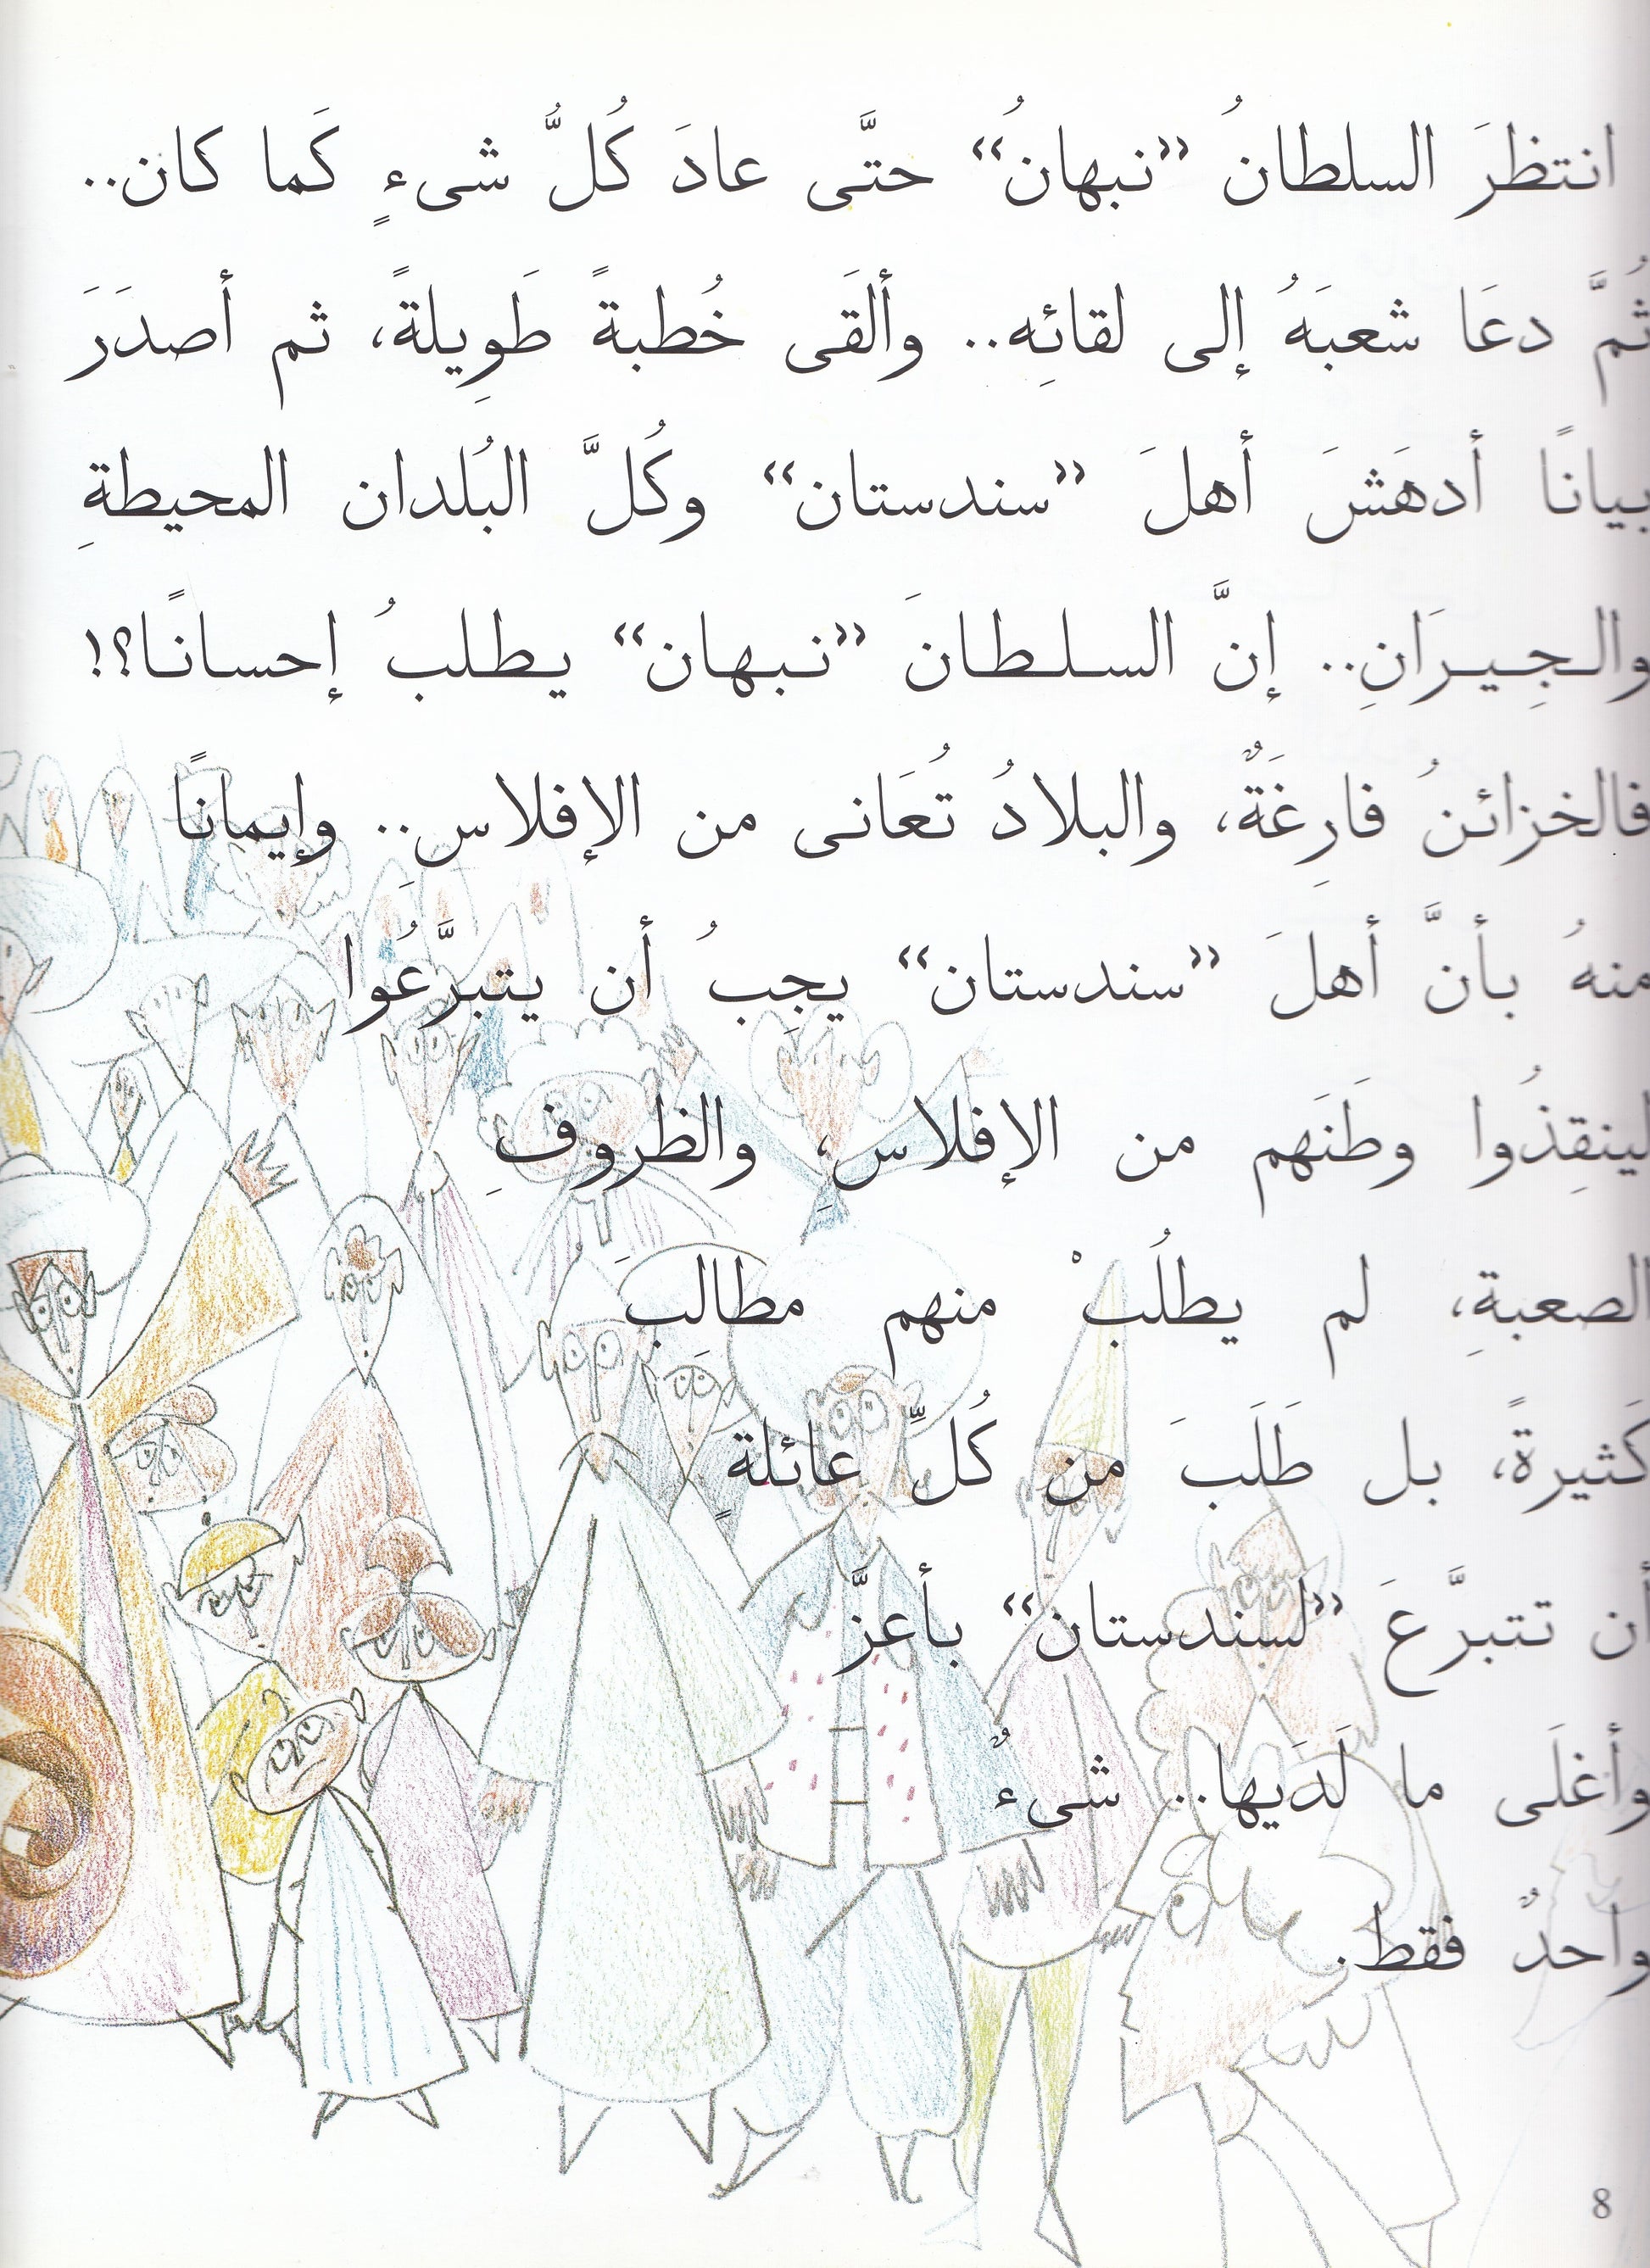 انتظرَ السلطانُ ”نبهانُ“ حتَّى عادَ كُلُّ شىءٍ كَما كان..
ثُمَّ دعَا شعبَهُ إلى لقائِه.. وألقَى خُطبةً طَوِيلةً، ثم أصدَرَ
بيانًا أدهَشَ أهلَ ”سندستان“ وكُلَّ البُلدان المحيطةِ
والجِيرَانِ.. إنَّ السلطانَ ”نبهان“ يطلبُ إحسانًا؟!
فالخزائنُ فارِغَةٌ، والبلادُ تُعَانى من الإفلاسِ.. وإيمانًا
منهُ بأنَّ أهلَ ”سندستان“ يجِبُ أن يتبرَّعُوا
لينقِذُوا وطَنَهم من الإفلاسِ، والظروفِ
الصعبةِ، لم يطلُبْ منهم مطالِبَ
كَثيرةً، بل طَلَبَ من كُلِّ عائلةٍ
أن تتبرَّعَ ”لسندستان“ بأعزَّ
وأغلَى ما لَدَيها.. شىءٌ
واحدٌ فقط.
8